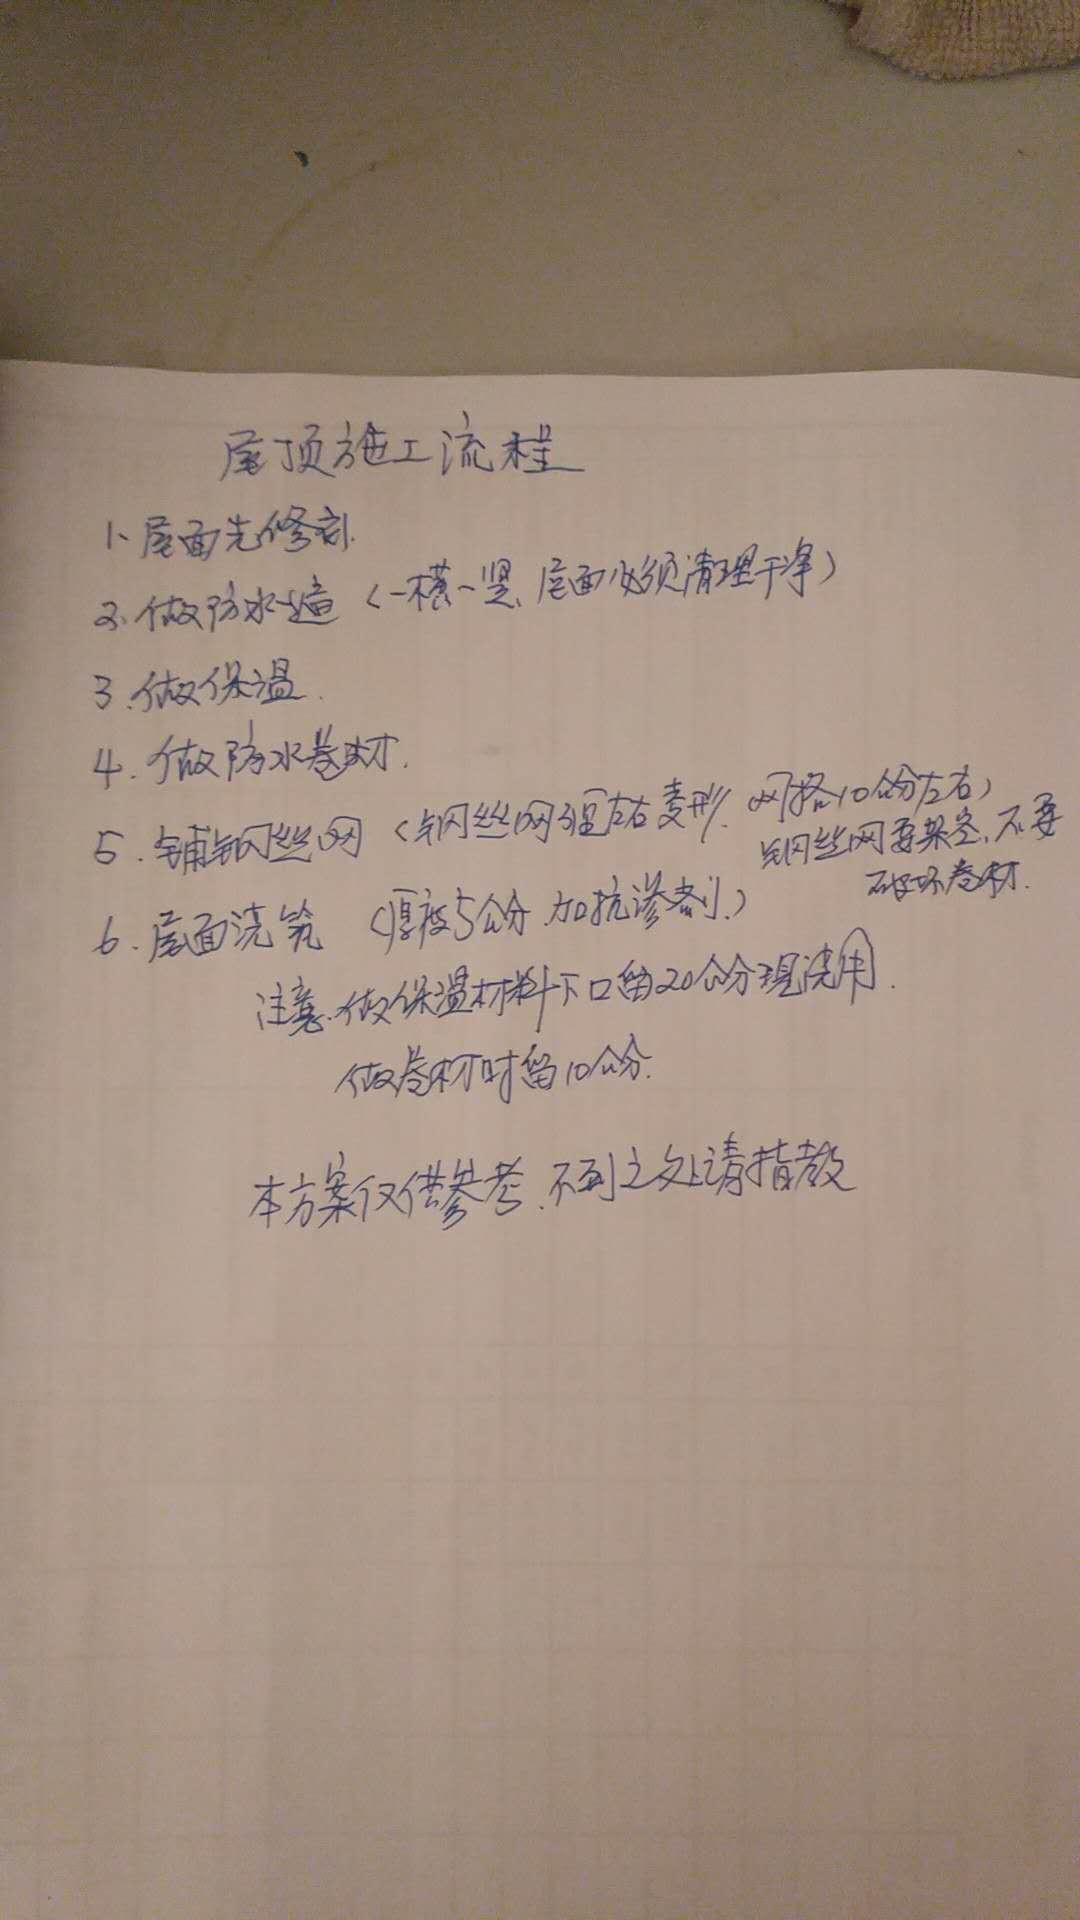 屋顶施工流程
1、屋面先修
2、做防水一遍（一横一竖、屋面必须清理干净）
3.做保温.
4.做防水卷材.
5.铺钢丝网（钢丝网左右变形.网格10公分左右）
钢丝网要架空、不要
破坏卷材.
6.屋面浇筑（厚度5公分.加抗渗剂.）
注意.做保温材料下口留20公分现浇用.
做卷材时留10公分.
本方案仅供参考.不到之处请指教